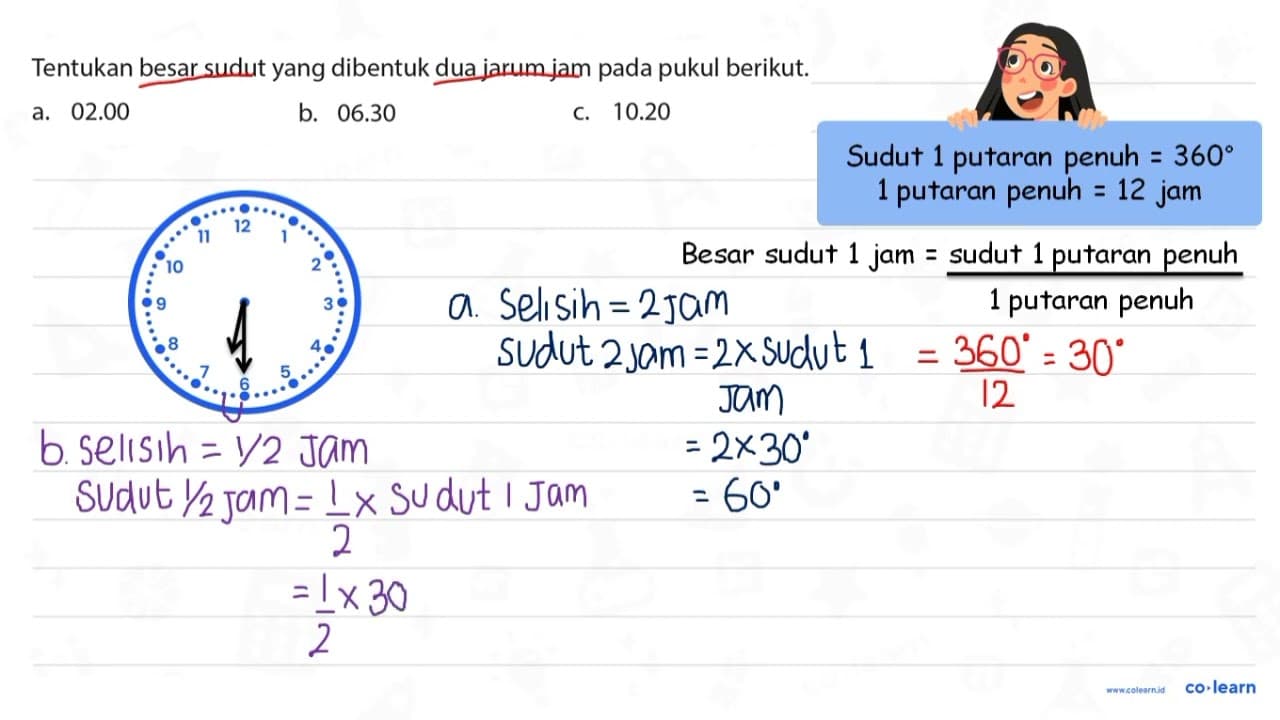 Tentukan besar sudut yang dibentuk dua jarum jam pada pukul berikut.
a. 02.00 b. 06.30 c. 10.20
Sudut 1 putaran penuh = 360°
1 putaran penuh = 12 jam
Besar sudut 1 jam = sudut 1 putaran penuh
1 putaran penuh
= 360° = 30°
12
12
1
2
3
4
5
6
7
8
9
10
11
a. Selisih = 2 jam
sudut 2 jam = 2 x sudut 1
jam
= 2 x 30°
= 60°
b. selisih = 1/2 jam
sudut 1/2 jam = 1 x sudut 1 jam
2
= 1 x 30
2
www.colearn.id co·learn